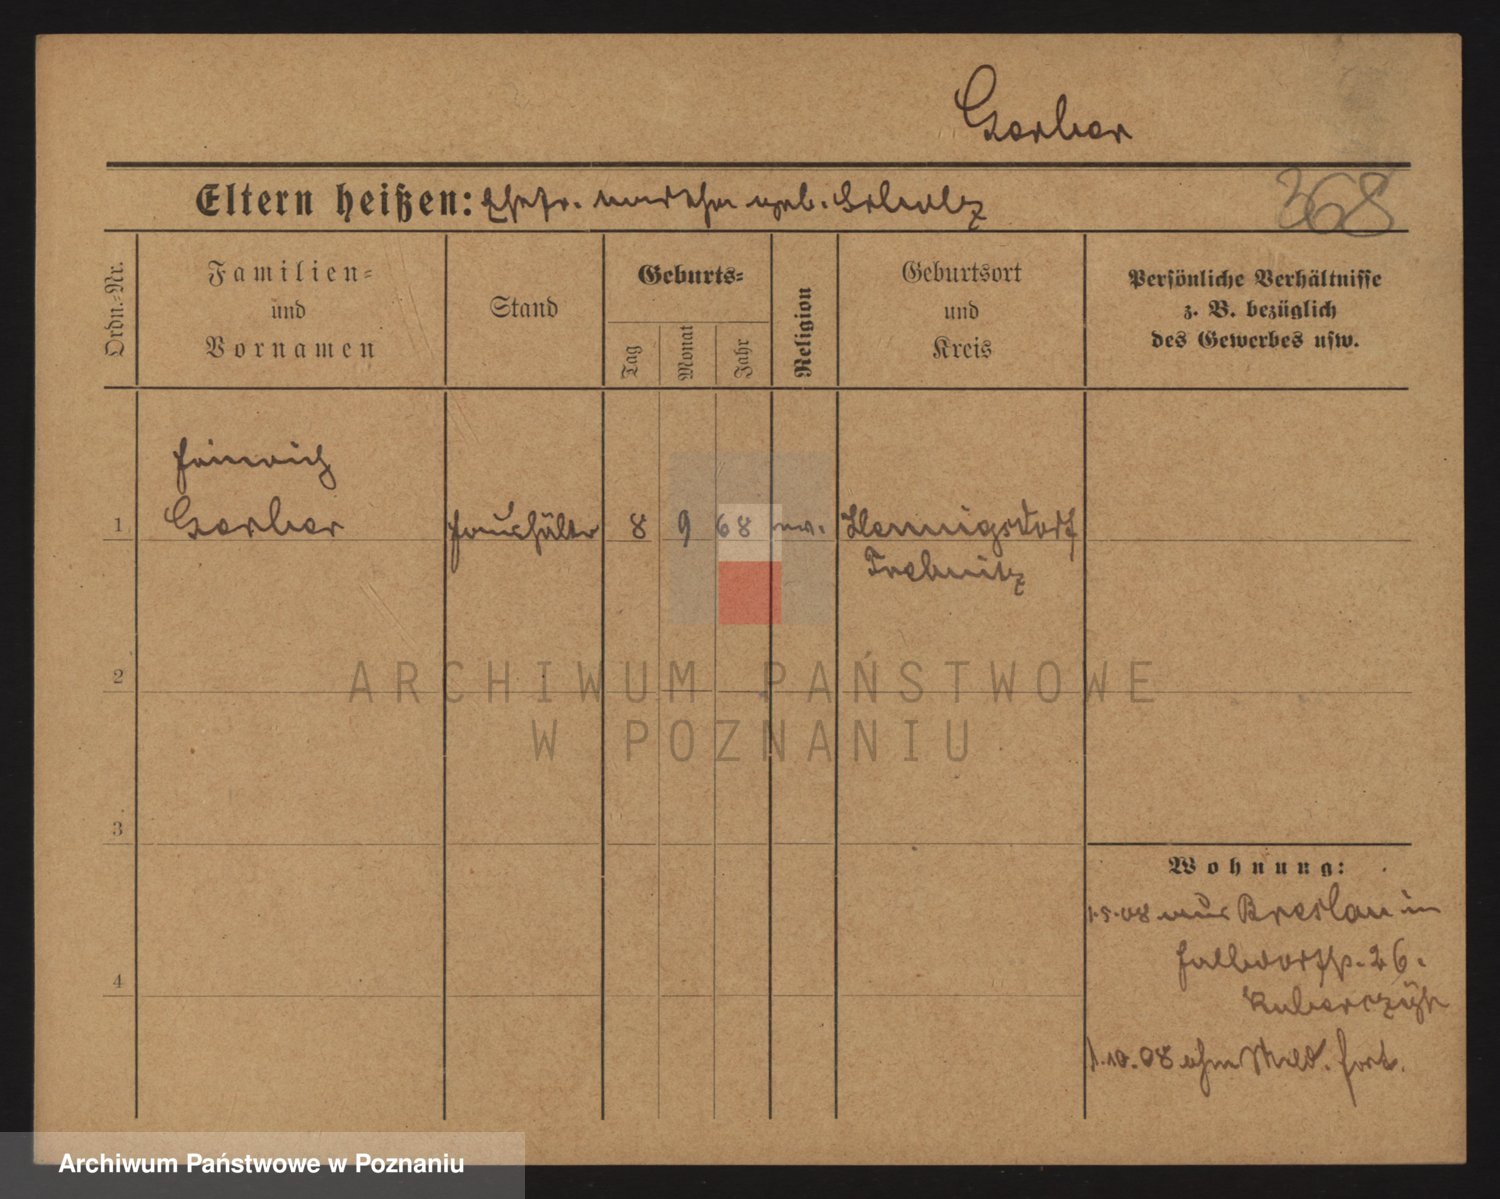 Gerber
Eltern heißen: Ehefr. Martha geb. Scholz
368
Ordn.-Nr.
Familien-
und
Vornamen
Stand
Geburts-
Tag
Monat
Jahr
Religion
Geburtsort
und
Kreis
Persönliche Verhältnisse
z. B. bezüglich
des Gewerbes usw.
Heinrich
1 Gerber Haushälter 8 9 68 ev. Hennigsdorf
Trebnitz
2
ARCHIWUM PAŃSTWOWE
W POZNANIU
3
Wohnung:
1.5.08 aus Breslau in
26.
4
1.10.08 ohne Meld. fort.
Archiwum Państwowe w Poznaniu